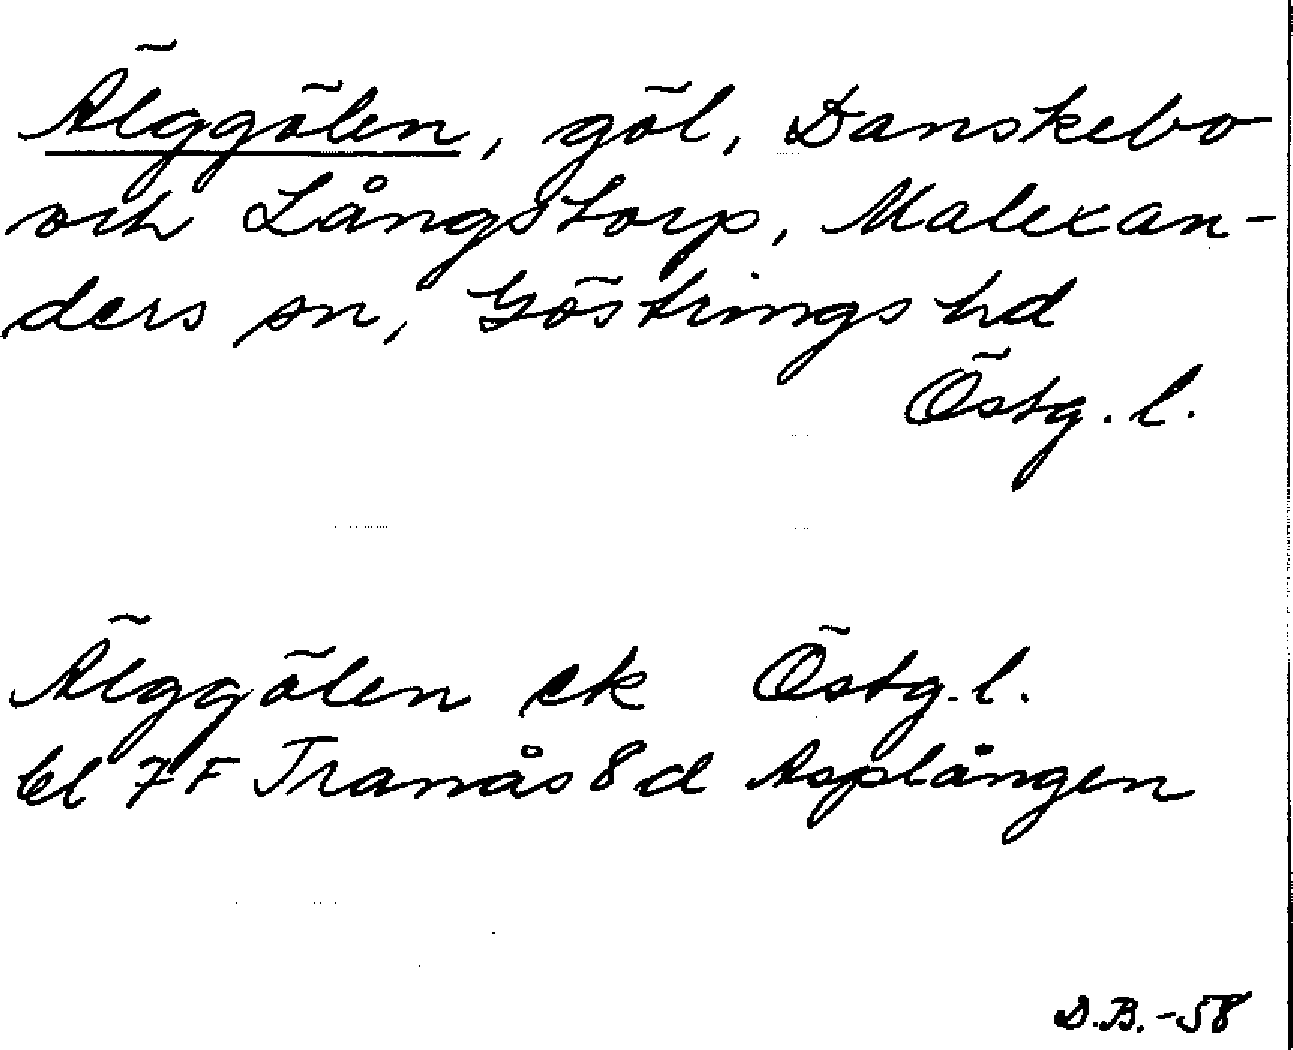 Älggölen, göl, Danskebo
och Långstorp, Malexan-
ders sn, Göstrings hd
Östg. l.
Älggölen ek Östg. l.
bl 7F Tranås 8d Asplången
D.B. -58